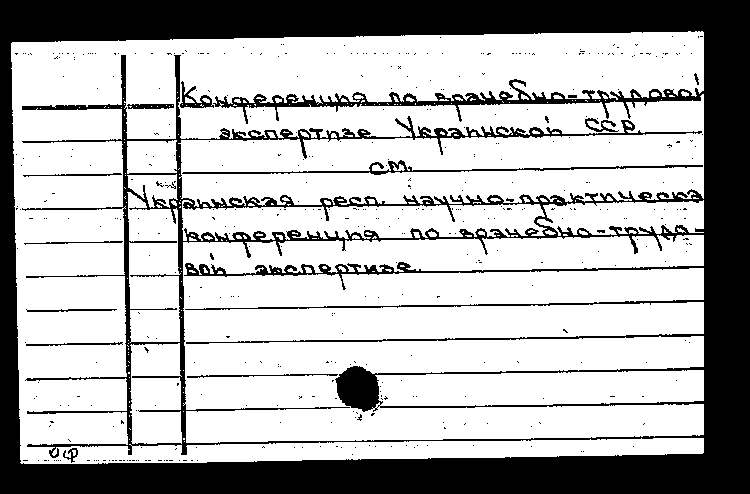 Конференция по врачебно-трудовой
экспертизе Украинской ССР.
см.
Украинская респ. научно-практическа
конференция по врачебно-трудо-
вой экспертизе.
оф